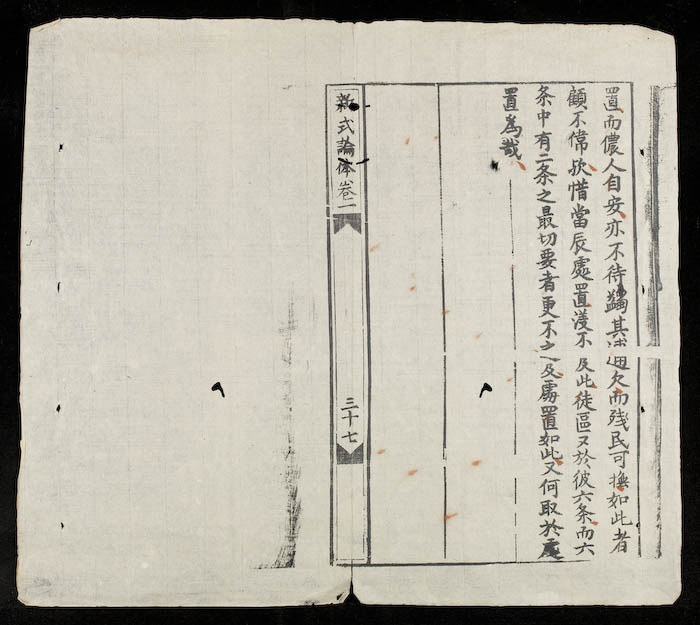 置而儂人自安亦不待蠲其逋欠而残民可撫如此者
顧不偉欤惜當辰處置漫不及此徒區又於彼六条而六
条中有二条之最切要者更不之及處置如此又何取於處
置為哉
新式論体卷一
三十七